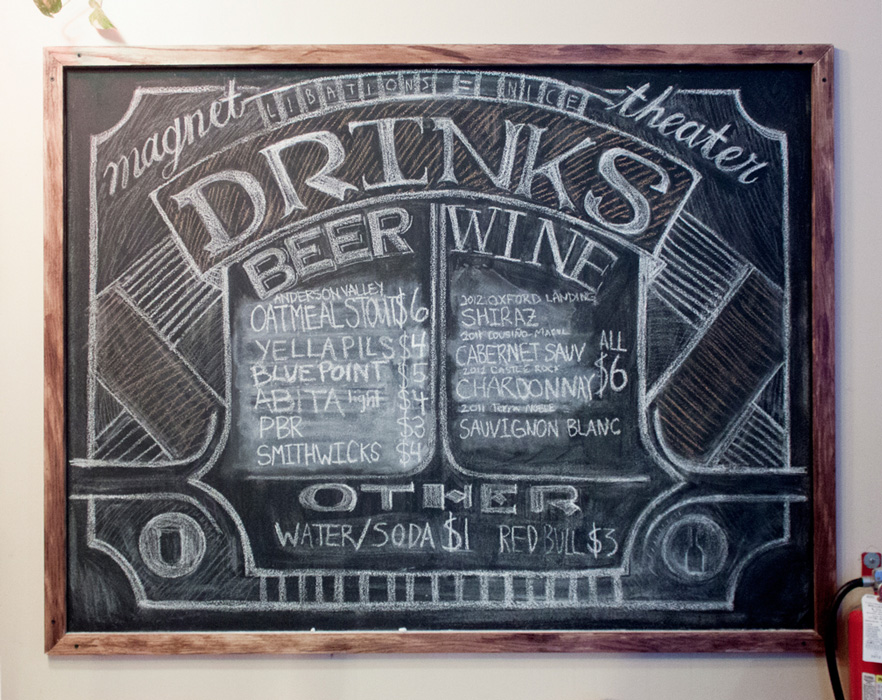 magnet LIBATIONS = NICE theater
DRINKS
BEER
ANDERSON VALLEY
OATMEAL STOUT $6
YELLA PILS $4
BLUE POINT $5
ABITA light $4
PBR $3
SMITHWICKS $4
WINE
2012 OXFORD LANDING
SHIRAZ
2011 COUSIÑO MACUL
CABERNET SAUV
2012 CASTLE ROCK
CHARDONNAY
2011 NOBLE
SAUVIGNON BLANC
ALL
$6
OTHER
WATER/SODA $1 RED BULL $3